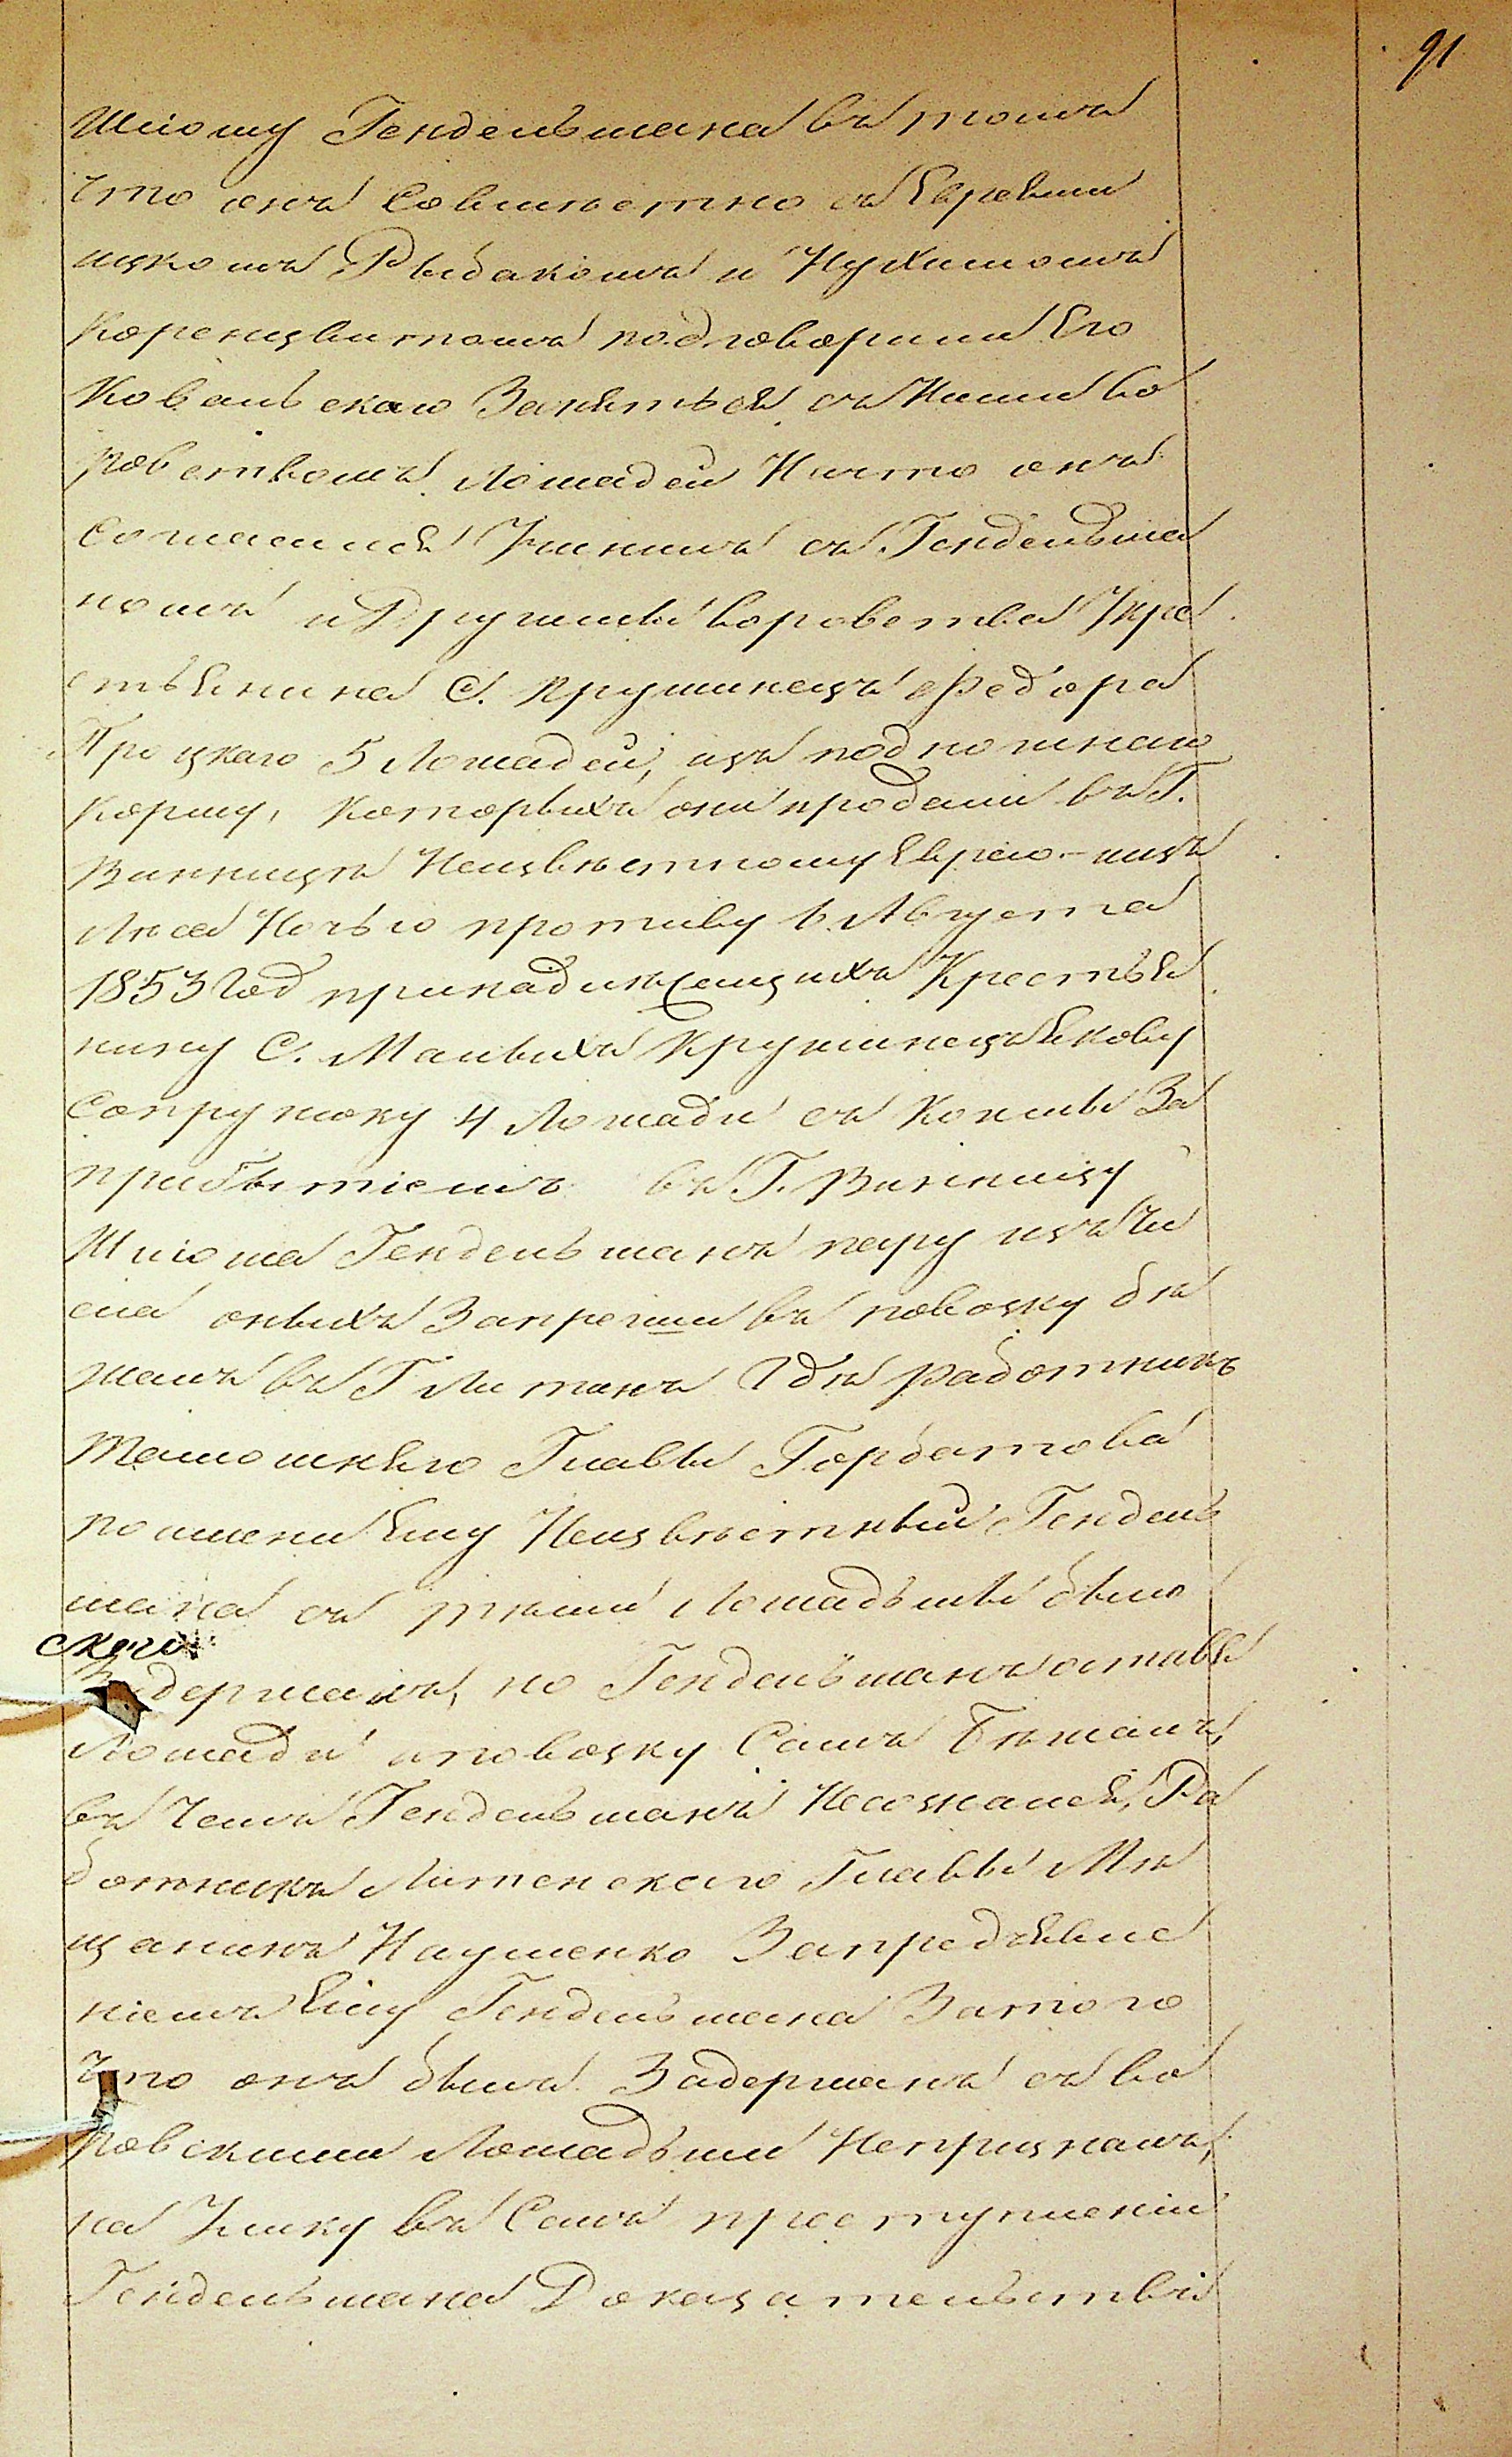 91
Шлому Гендельмана въ томъ
что онъ Совмѣстно съ Евреями
ицкомъ Рыбакомъ и Нухимомъ
Коренцвитомъ подговорили Его
Ковальскаго Занятьсѧ съ Ними Во
ровствомъ Лошадей И что онъ
Согласилсѧ Учинилъ съ Гендельма
номъ и Другими воровства У кре
стьянина С. Крушинецъ Федора
Троцкаго 5 Лошадей, изъ подножнаго
корму, которыхъ они продали въ Г.
Винницѣ Неизвѣстному Еврею – изъ
Лѣса Ночью противу 6. Августа
1853 Год принадлѣжащихъ Крестья
нину С. Малыхъ Крушинецъ Якову
Сопружоку 4 Лошади съ коими За
прибытіемъ въ Г. Винницу
Шлома Гендельманъ пару изъ чи
сла оныхъ Запрегши въ повозку бѣ
жалъ въ Г Литинъ Гдѣ работникъ
Тамошняго Главы Горбатова
по имени Ему Неизвѣстный Гендель
мана съ тѣми Лошадьми было
скаго
Задержалъ, но Гендельманъ оставя
Лошади и повозку Самъ Бѣжалъ,
въ Чемъ Гендельманъ Несознался, Ра
ботникъ Литенскаго Главы Мѣ
щанинъ Науменко За предъявле
ніемъ Ему Гендельмана За того
что онъ былъ Задержанъ съ Во
ровскими Лошадьми Непризналъ,
на улику въ Семъ преступленіи
Гендельмана Доказательствъ